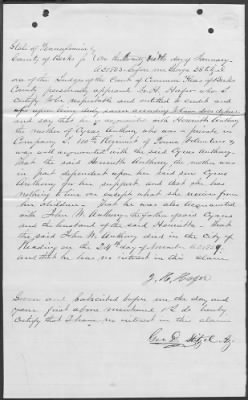 State of Pennsylvania }
County of Berks } On this twenty sixth day of January
A.D. 1883 before me George D. Stitzel
one of the Judges of the Court of Common Pleas of Berks
County personally appeared J. H. Hafer who I
certify to be respectable and entitled to credit and
who upon being duly sworn according to law does depose
and say that he is acquainted with Henrietta Anthony
the mother of Cyrus Anthony who was a private in
Company Regiment of Penna Volunteers &
was well acquainted with the said Cyrus Anthony.
That the said Henrietta Anthony the mother was
in part dependent upon her said son Cyrus
Anthony for her support and that she has
nothing to live on except what she receives from
her children. That he was also acquainted
with John W. Anthony the father of said Cyrus
and the husband of the said Henrietta. That
the said John W. Anthony died in the City of
Reading on the 24th day of 1879.
and that he has no interest in this claim
J. H. Hafer
Sworn and subscribed before me the day and
year first above mentioned & I do hereby
certify that I have no interest in this claim
Geo. D. Stitzel